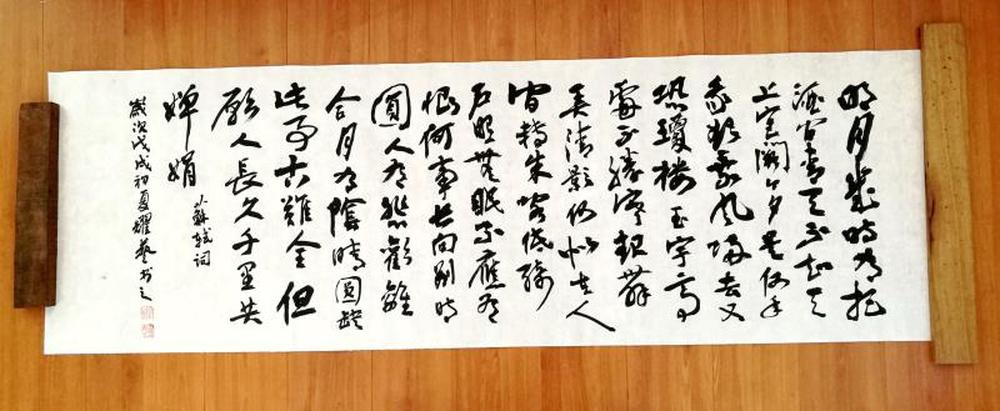 明月幾時有把
酒問青天不知天
上宮闕今夕是何年
我欲乘風歸去又
恐瓊樓玉宇高
處不勝寒起舞
弄清影何似在人
間轉朱閣低綺
戶照無眠不應有
恨何事長向別時
圓人有悲歡離
合月有陰晴圓缺
此事古難全但
願人長久千里共
嬋娟
蘇軾詞
歲次戊戌初夏耀藝書之